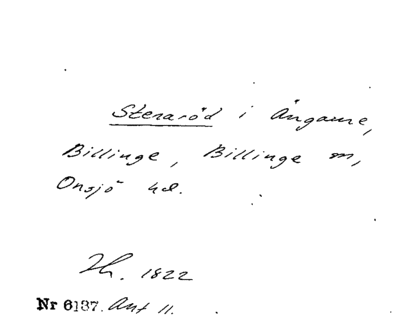 Stenaröd i Ängarne,
Billinge, Billinge m,
Onsjö hd.
Th. 1822
Nr 6137. Ant 11.